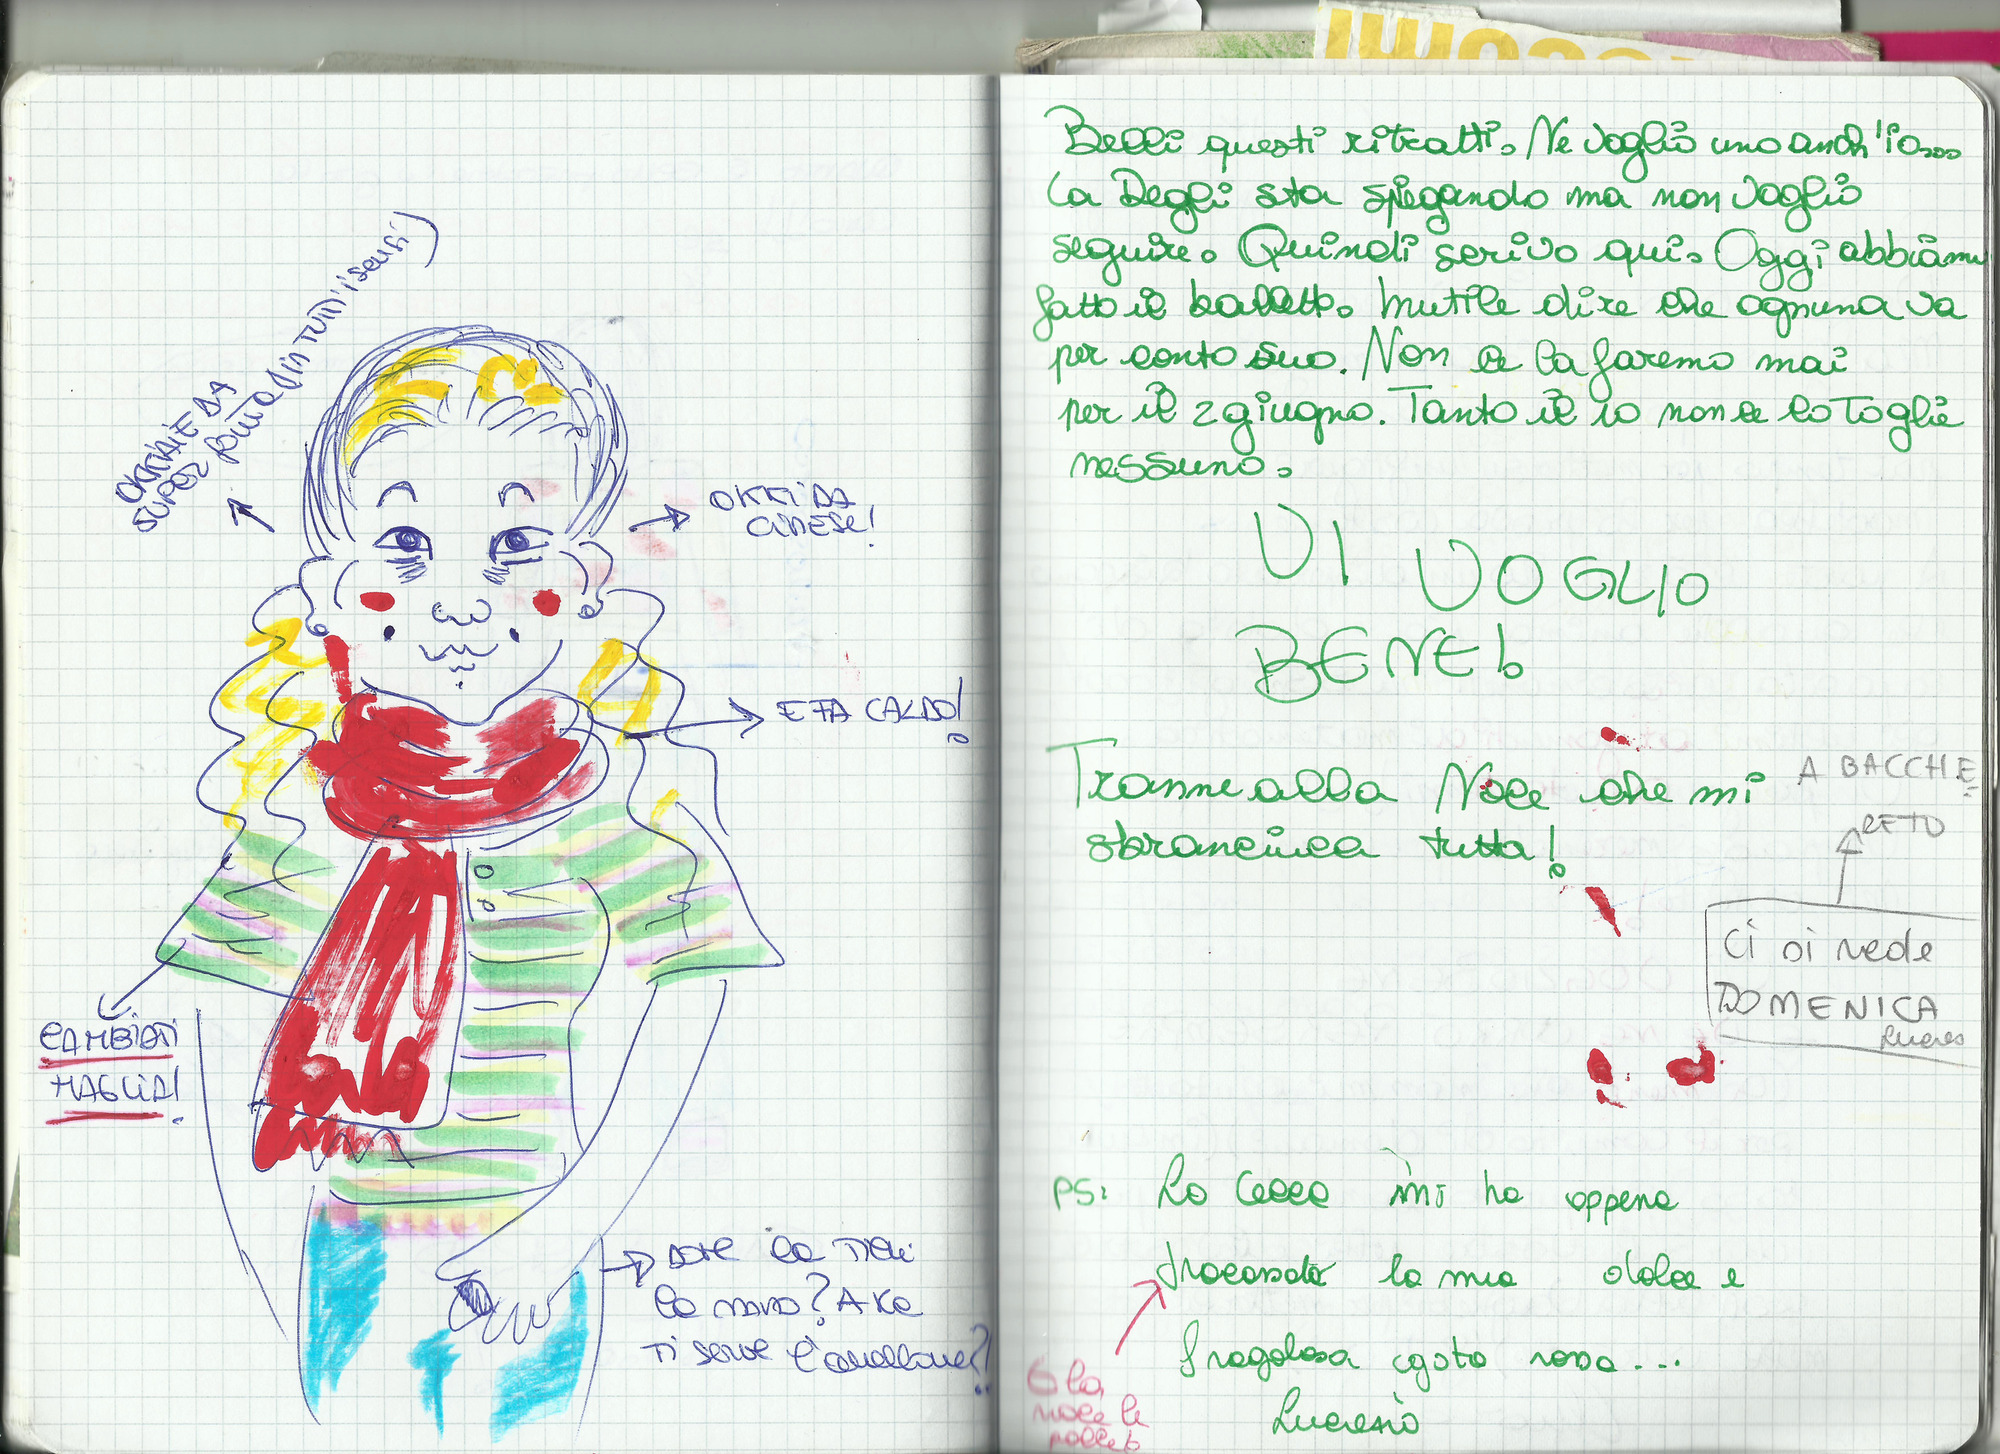 OKKIAIE DA
SUPER
(in TUTTI i sensi)
OKKI DA
CINESE!
E FA CALDO!
CAMBIATI
MAGLIA!
DOVE LA TIENI
LA MANO? A KE
TI SERVE l'anellone?!
Belli questi ritratti. Ne voglio uno anch'io...
La Degli sta spiegando ma non voglio
seguire. Quindi scrivo qui. Oggi abbiamo
fatto il balletto. Inutile dire che ognuna va
per conto suo. Non ce la faremo mai
per il 2 giugno. Tanto il 10 non ce lo toglie
nessuno.
VI VOGLIO
BENE!
Tranne alla Nole che mi
sbrancica tutta!
A BACCHE
RETO
Ci si vede
DOMENICA
PS: La Cecca mi ha appena
fracassato la mia dolce e
fragolosa gota rossa...
E la
Nole le